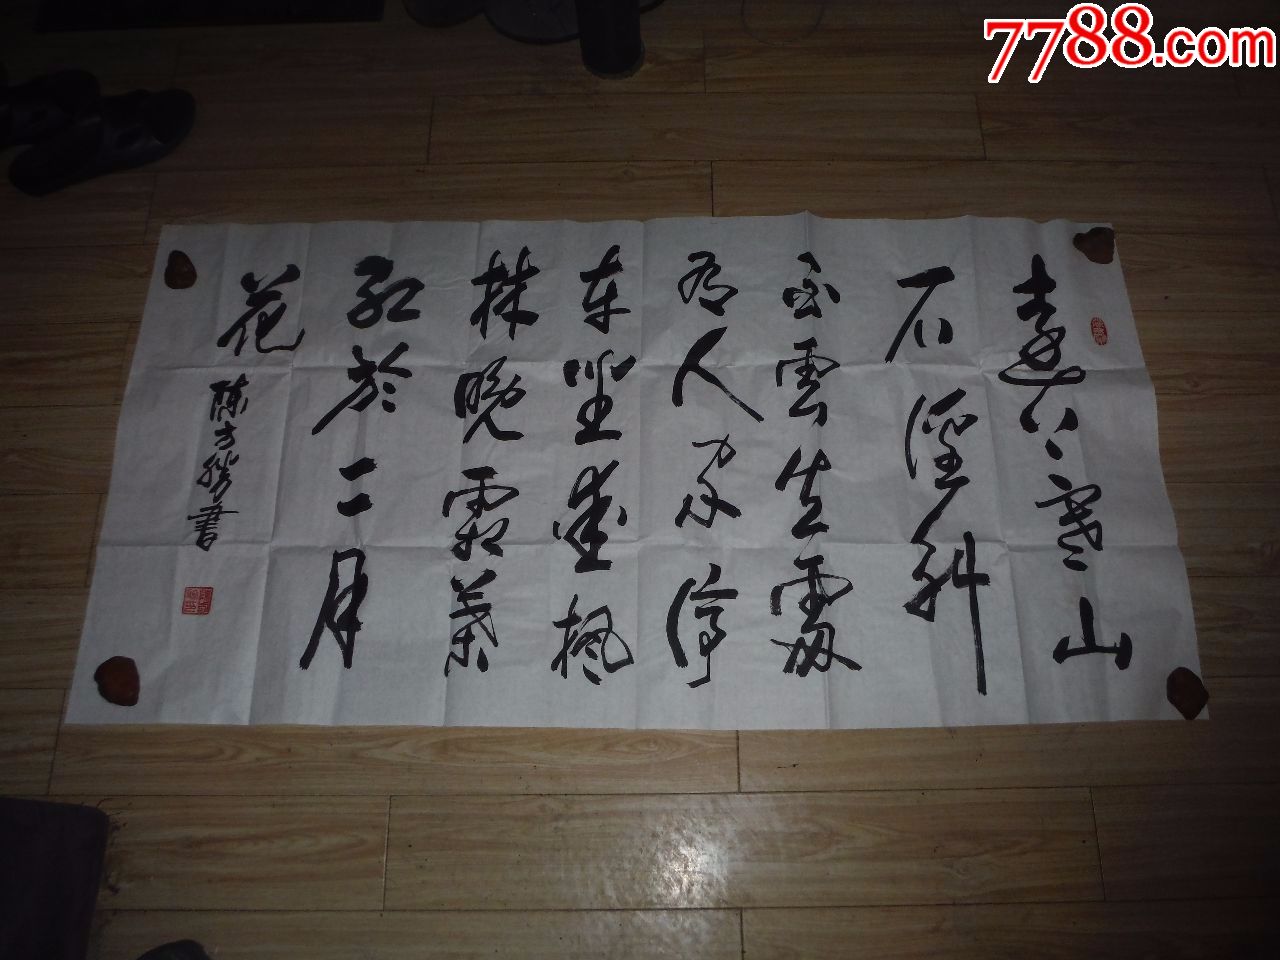 遠上寒山
石徑斜
白雲生處
有人家停
车坐愛楓
林晚霜葉
红於二月
花
陳方勝書
7788.com